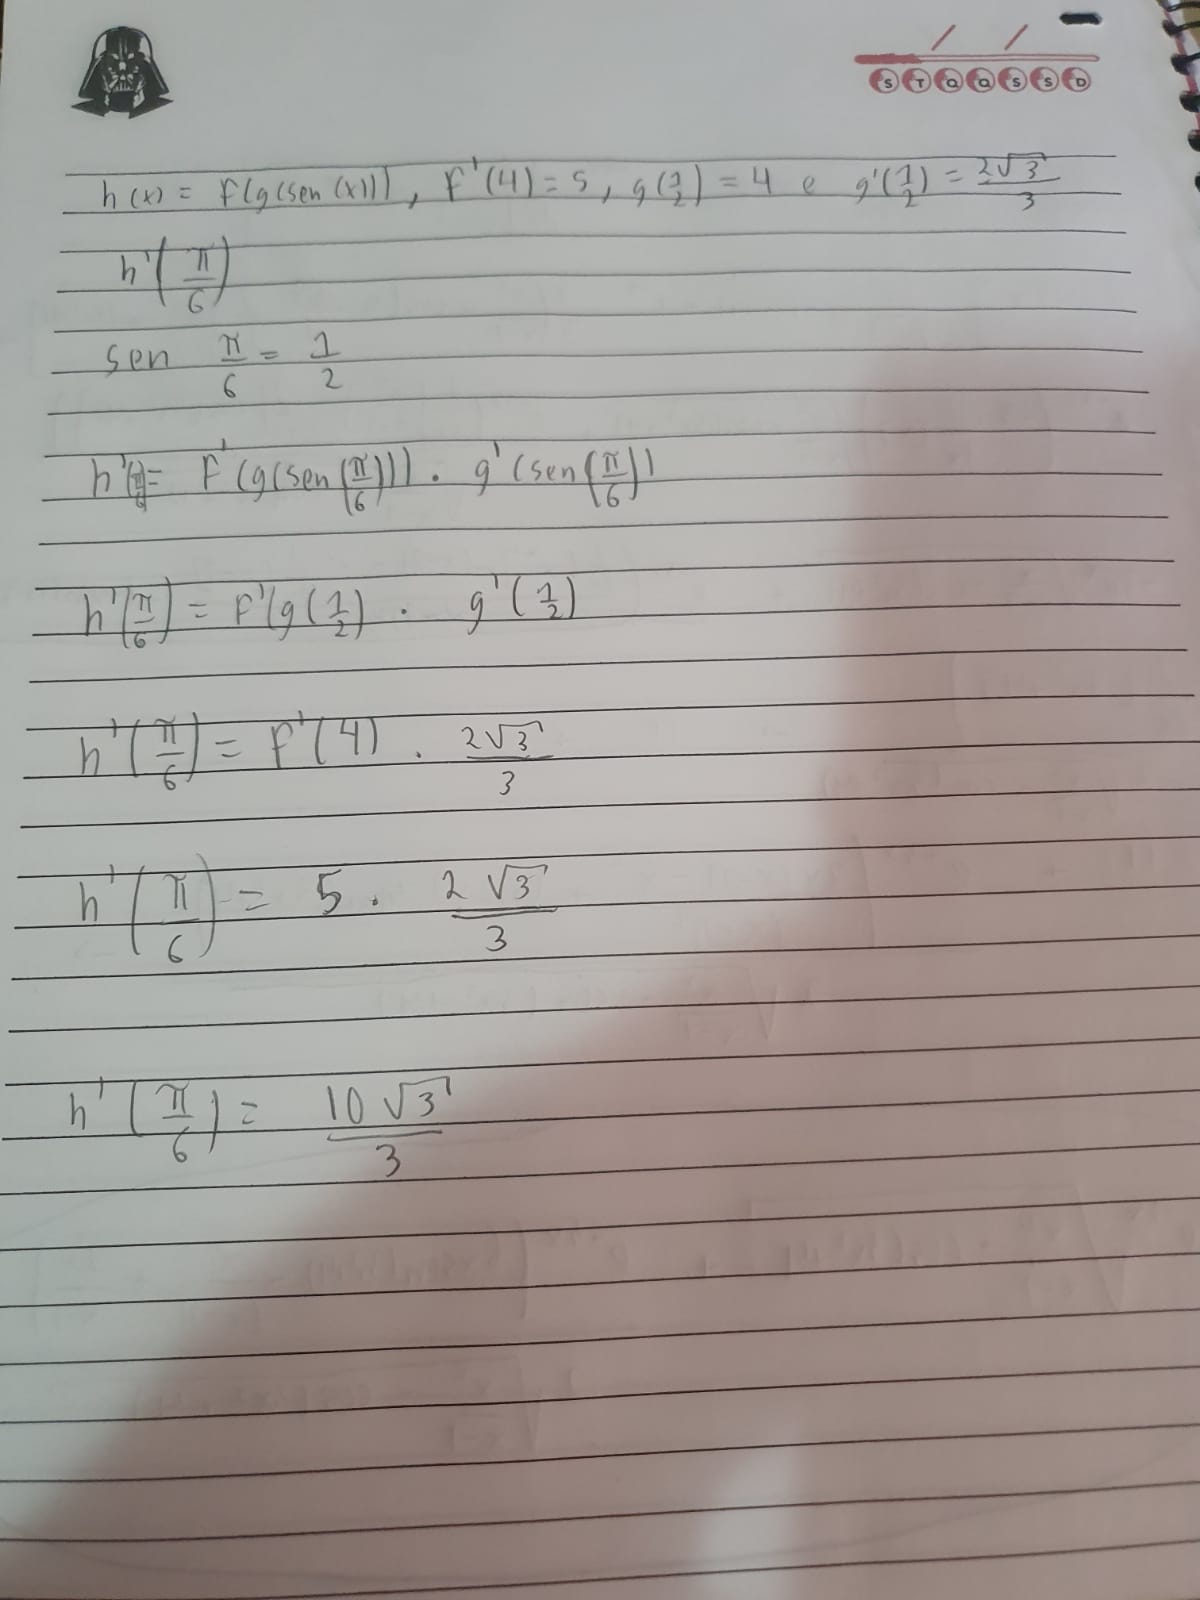 S T Q Q S S D
h(x) = F(g(sen(x))), F'(4) = 5, g(1/2) = 4 e g'(1/2) = 2√3/3
h'(π/6)
sen π/6 = 1/2
h'(π/6) = F'(g(sen(π/6))) . g'(sen(π/6))
h'(π/6) = F'(g(1/2) . g'(1/2)
h'(π/6) = F'(4) . 2√3/3
h'(π/6) = 5 . 2√3/3
h'(π/6) = 10√3/3